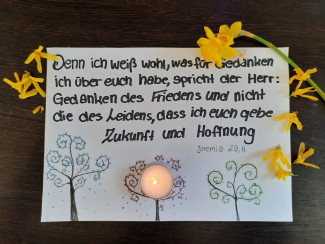 Denn ich weiß wohl, was für Gedanken
ich über euch habe, spricht der Herr:
Gedanken des Friedens und nicht
die des Leidens, dass ich euch gebe
Zukunft und Hoffnung
Jeremia 29,11